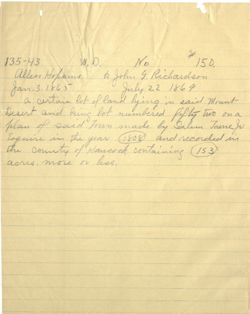 135-43 W.D. No # 150
Allen Hopkins to John G. Richardson
Jan. 3. 1865 July 22 1869
a certain lot of land lying in said Mount
Desert and being lot numbered fifty two on a
plan of said Town made by Salem Towne, Jr
Esquire in the year (1808) and recorded in
the county of Hancock containing (153)
acres. more or less.